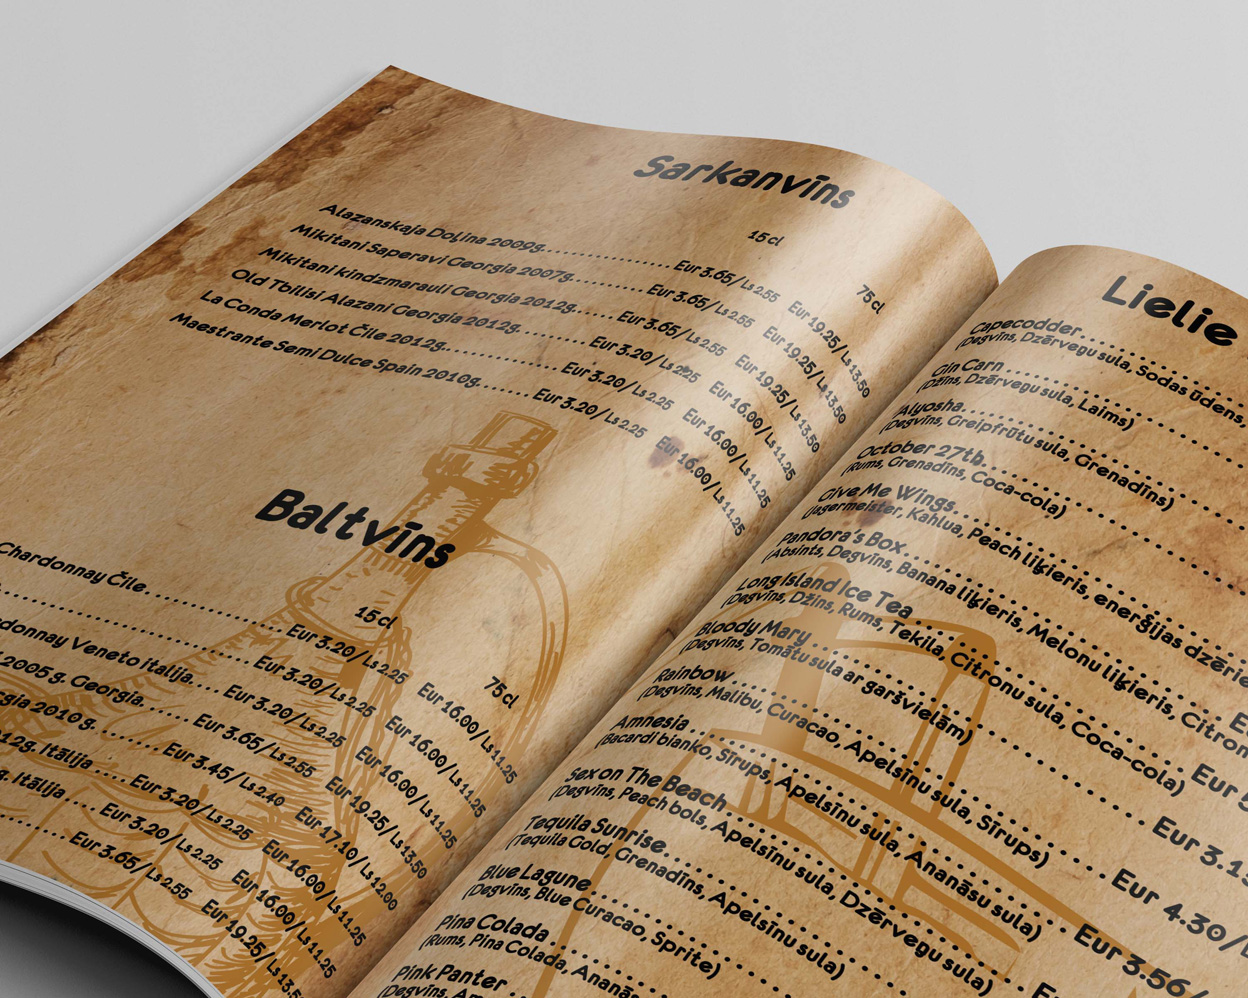 Sarkanvīns
15cl
75cl
Alazanskaja Doļina 2009g. Eur 3.65/Ls2.55 Eur 19.25/Ls13.50
Mikitani Saperavi Georgia 2007g. Eur 3.65/Ls2.55 Eur 19.25/Ls13.50
Mikitani kindzmarauli Georgia 2012g. Eur 3.65/Ls2.55 Eur 19.25/Ls13.50
Old Tbilisi Alazani Georgia 2012g. Eur 3.20/Ls2.25 Eur 16.00/Ls11.25
La Conda Merlot Čīle 2012g. Eur 3.20/Ls2.25 Eur 16.00/Ls11.25
Maestrante Semi Dulce Spain 2010g. Eur 3.20/Ls2.25 Eur 16.00/Ls11.25
Baltvīns
15cl
75cl
Chardonnay Čīle. Eur 3.20/Ls2.25 Eur 16.00/Ls11.25
Eur 3.20/Ls2.25 Eur 16.00/Ls11.25
donnay Veneto itālija.... Eur 3.20/Ls2.25 Eur 16.00/Ls11.25
2005 g. Georgia. Eur 3.65/Ls2.55 Eur 19.25/Ls13.50
gia 2010g. Eur 3.45/Ls2.40 Eur 17.10/Ls12.00
12g. Itālija..... Eur 3.20/Ls2.25 Eur 16.00/Ls11.25
g. Itālija.... Eur 3.20/Ls2.25 Eur 16.00/Ls11.25
Eur 3.65/Ls2.55 Eur 19.25/Ls13.5
Lielie
Capecodder
(Degvīns, Dzērvegu sula, Sodas ūdens,
Gin Carn
(Džins, Dzērvegu sula, Laims)
Alyosha
(Degvīns, Greipfrūtu sula, Grenadīns)
October 27th
(Rums, Grenadīns, Coca-cola)
Give Me Wings
(Jagermeister, Kahlua, Peach liķieris, enerģijas dzērie
Pandora's Box
(Absints, Degvīns, Banana liķieris, Melonu liķieris, Citron
Long Island Ice Tea
(Degvīns, Džins, Rums, Tekila, Citronu sula, Coca-cola)
Bloody Mary
(Degvīns, Tomātu sula ar garšvielām) Eur
Rainbow
(Degvīns, Malibu, Curacao, Apelsīnu sula, Sīrups) Eur 3.13
Amnesia
(Bacardi bianko, Sīrups, Apelsīnu sula, Ananāsu sula) Eur 4.30/
Sex on The Beach
(Degvīns, Peach bols, Apelsīnu sula, Dzērvegu sula) Eur 3.56/
Tequila Sunrise
(Tequila Gold, Grenadīns, Apelsīnu sula)
Blue Lagune
(Degvīns, Blue Curacao, Sprite)
Pina Colada
(Rums, Pina Colada, Ananās
Pink Panter
(Degvīns,